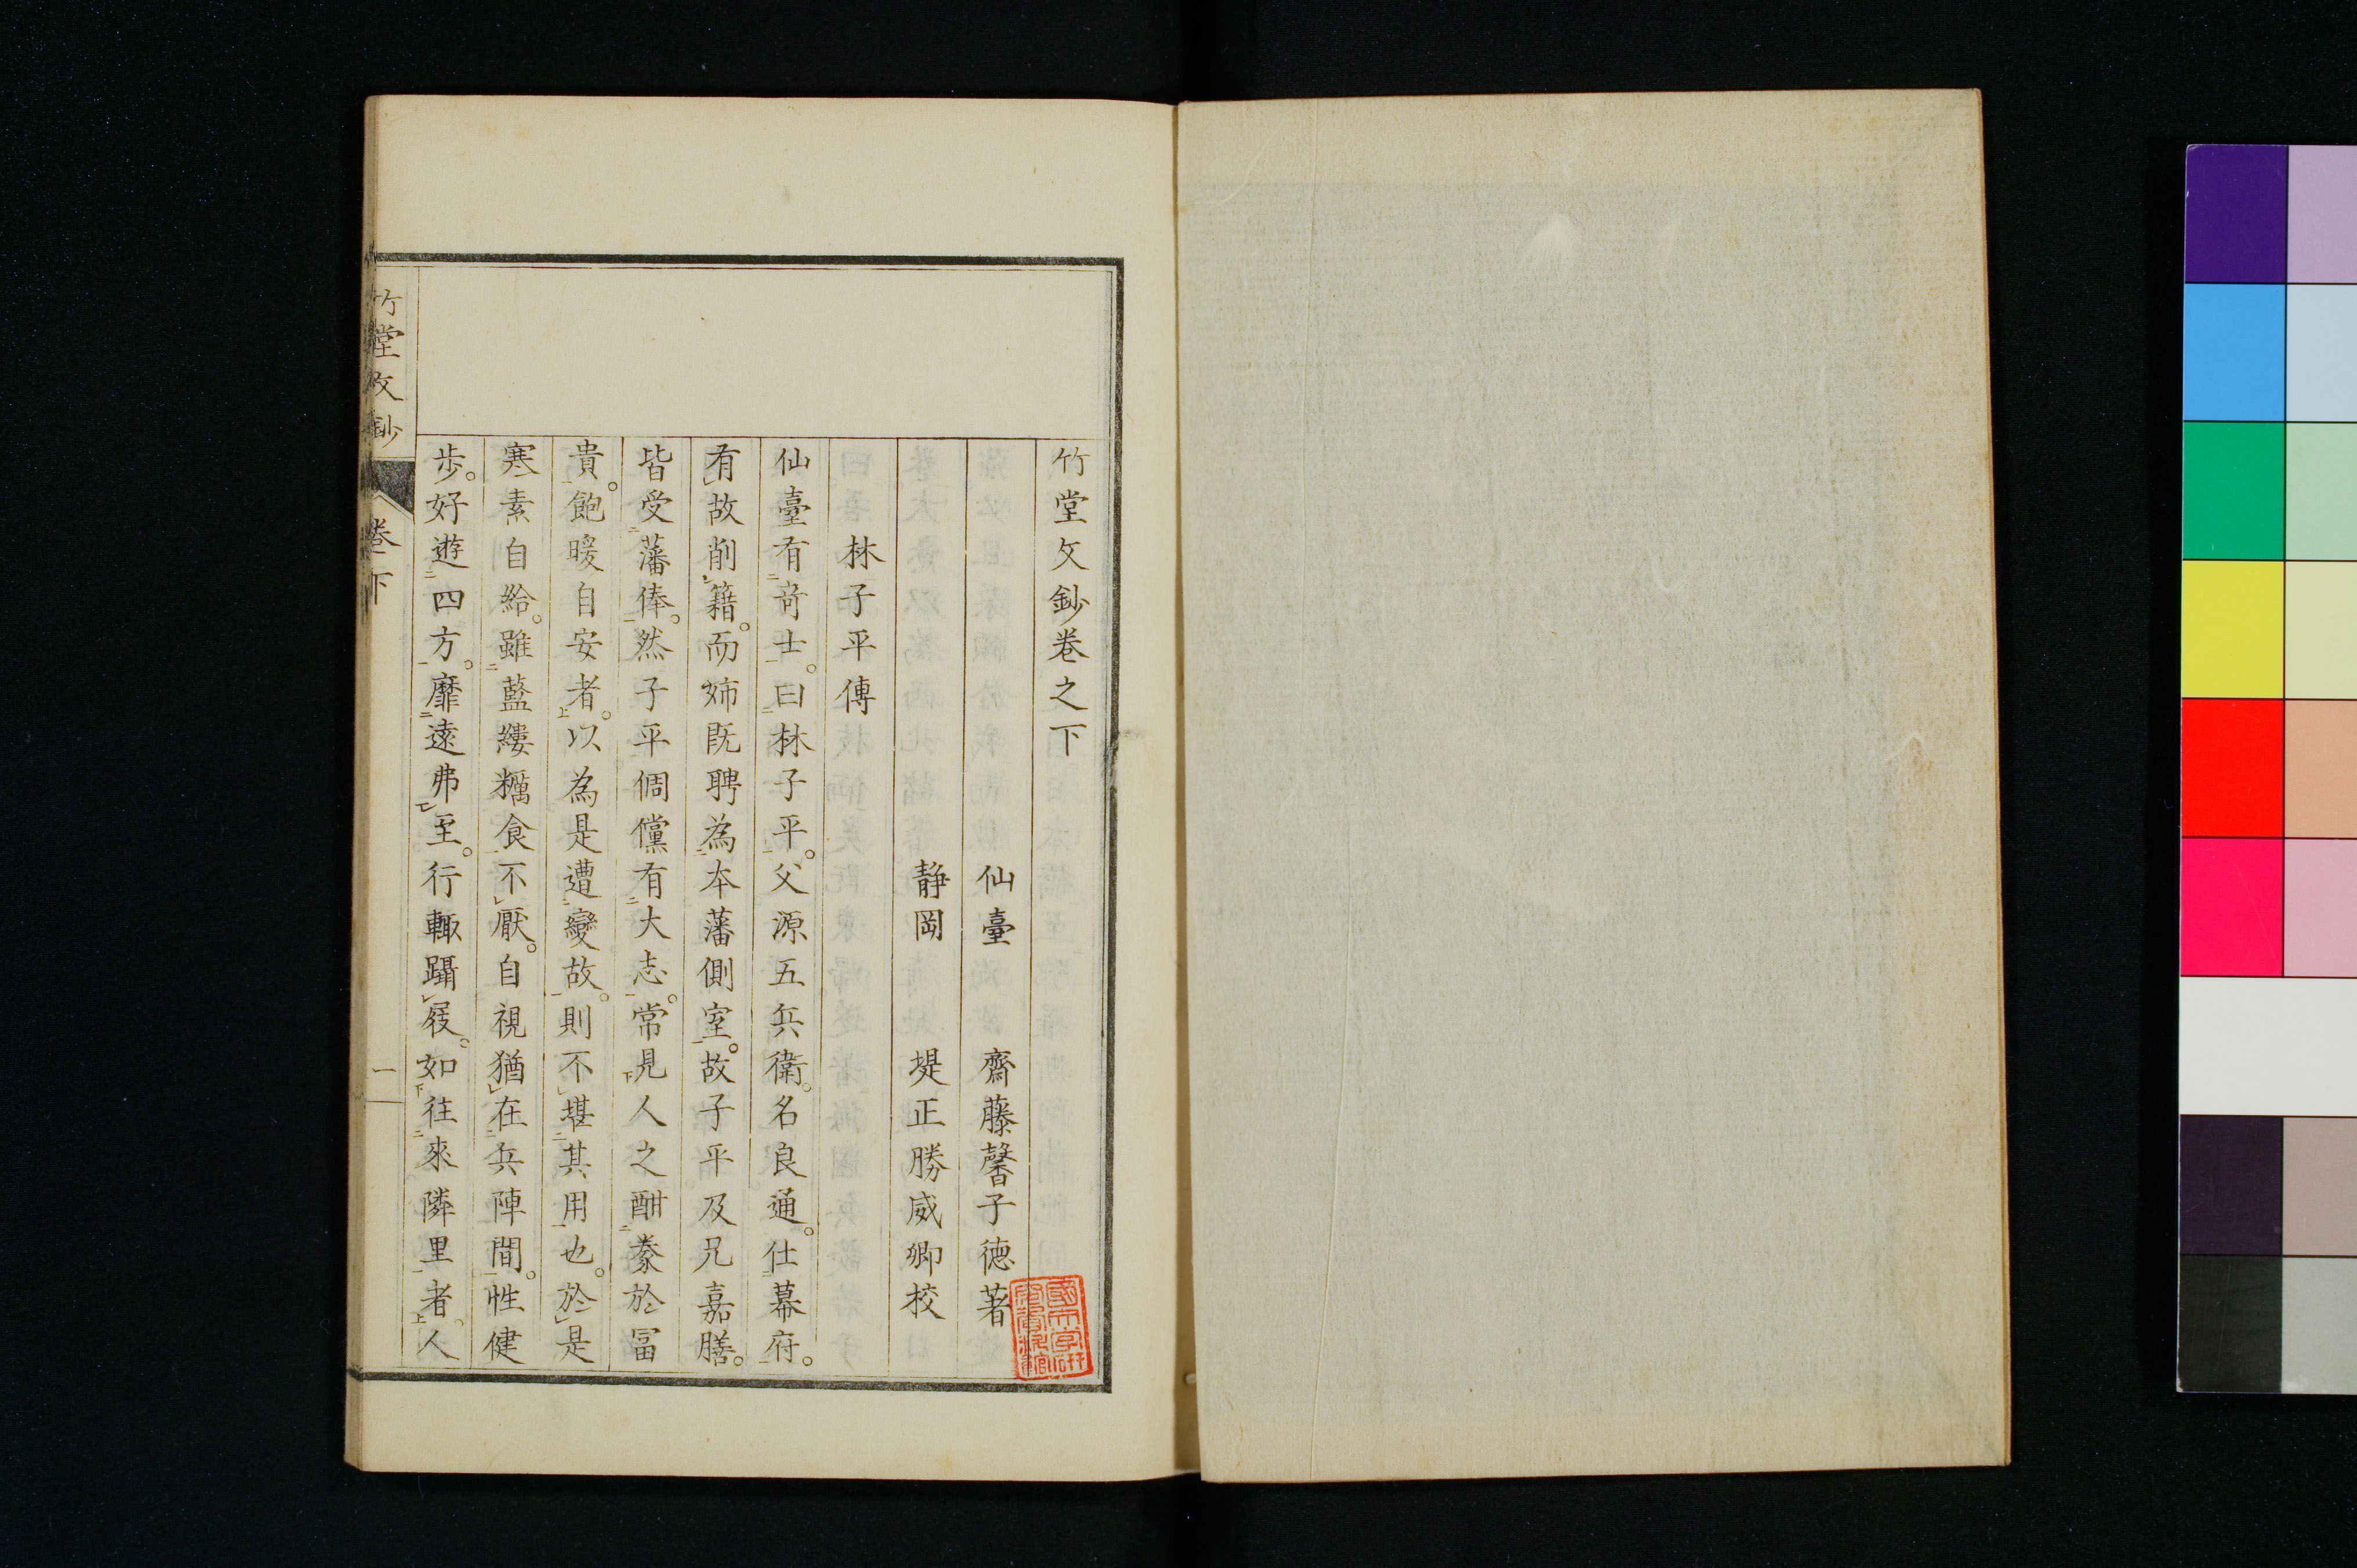 竹堂文鈔卷之下
仙臺　齋藤馨子德著
静岡　堤正勝威卿校
林子平傳
仙臺有竒士。曰林子平。父源五兵衛。名良通。仕幕府。
有故削籍。而姉既聘為本藩側室。故子平及兄嘉膳。
皆受藩俸。然子平倜儻有大志。常見人之酣豢於冨
貴。飽暖自安者。以為是遭變故。則不堪其用也。於是
寒素自給。雖藍縷糲食不厭。自視猶在兵陣間。性健
歩。好遊四方。靡遠弗至。行輙躡屐。如往來隣里者。人
竹堂文鈔
卷下
一